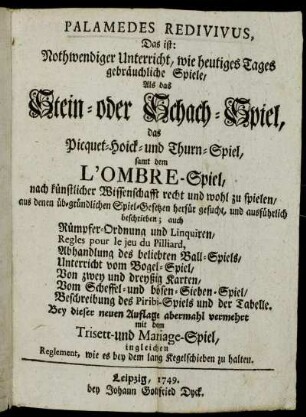 PALAMEDES REDIVIVUS,
Das ist:
Nothwendiger Unterricht, wie heutiges Tages
gebräuchliche Spiele,
Als das
Stein- oder Schach-Spiel,
das
Picquet-Hoick- und Thurn-Spiel,
samt dem
L'OMBRE-Spiel,
nach künstlicher Wissenschafft recht und wohl zu spielen,
aus denen üb-gründlichen Spiel-Gesetzen herfür gesucht, und ausführlich
beschrieben; auch
Rümpfer-Ordnung und Linquiren,
Regles pour le jeu du Pilliard,
Abhandlung des beliebten Ball-Spiels,
Unterricht vom Bogel-Spiel,
Von zwey und dreyßig Karten,
Vom Scheffel- und bösen-Sieben-Spiel,
Beschreibung des Piribi-Spiels und der Tabelle.
Bey dieser neuen Auflage abermahl vermehrt
mit dem
Trisett-und Mariage-Spiel,
ingleichen
Reglement, wie es bey dem lang Kegelschieben zu halten.
Leipzig, 1749.
bey Johann Gottfried Dyck.